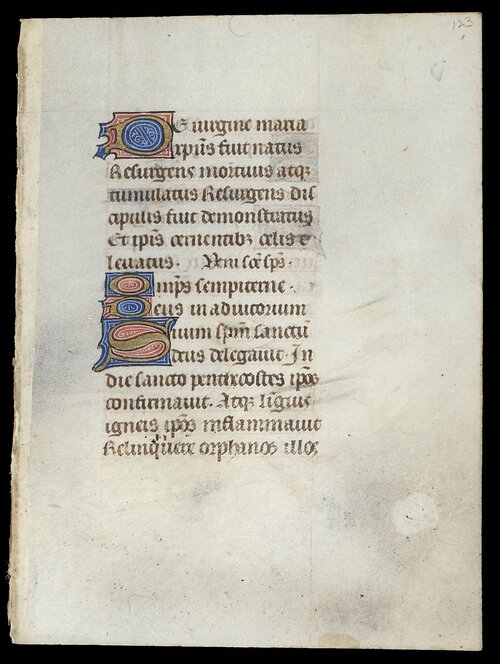 123
De uirgine maria
xp̄us fuit natus
Resurgens mortuus atqꝫ
tumulatus Resurgens dis
cipulis fuit demonstratus
Et ip̄is cernentibꝫ celis e
leuatus. Veni sc̄e sp̄s.
Omp̄s sempiterne.
Deus in adiutorium
Suum sp̄m sanctū
deus delegauit. In
die sancto penthecostes ip̄os
confirmauit. Atqꝫ linguis
igneis ip̄os inflammauit
Relinquere orphanos illos